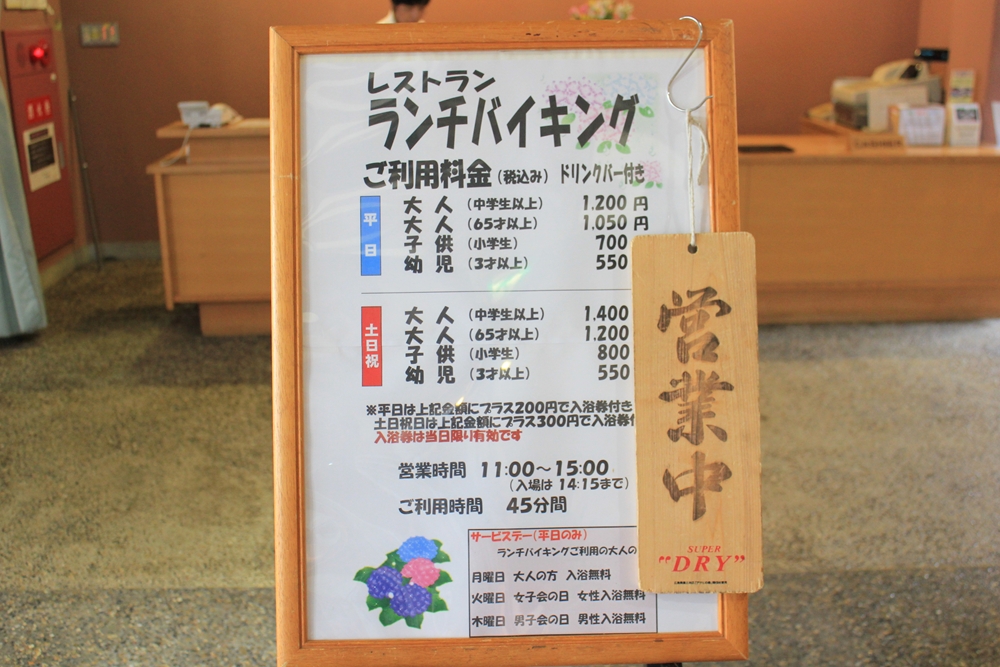 レストラン
ランチバイキング
ご利用料金(税込み) ドリンクバー付き
平日
大人 (中学生以上) 1,200 円
大人 (65才以上) 1,050 円
子供 (小学生) 700
幼児 (3才以上) 550
土日祝
大人 (中学生以上) 1,400
大人 (65才以上) 1,200
子供 (小学生) 800
幼児 (3才以上) 550
※平日は上記金額にプラス200円で入浴券付き
土日祝日は上記金額にプラス300円で入浴券
入浴券は当日限り有効です
営業時間 11:00～15:00
(入場は 14:15まで)
ご利用時間 45分間
サービスデー(平日のみ)
ランチバイキングご利用の大人の
月曜日 大人の方 入浴無料
火曜日 女子会の日 女性入浴無料
木曜日 男子会の日 男性入浴無料
営業中
SUPER
"DRY"